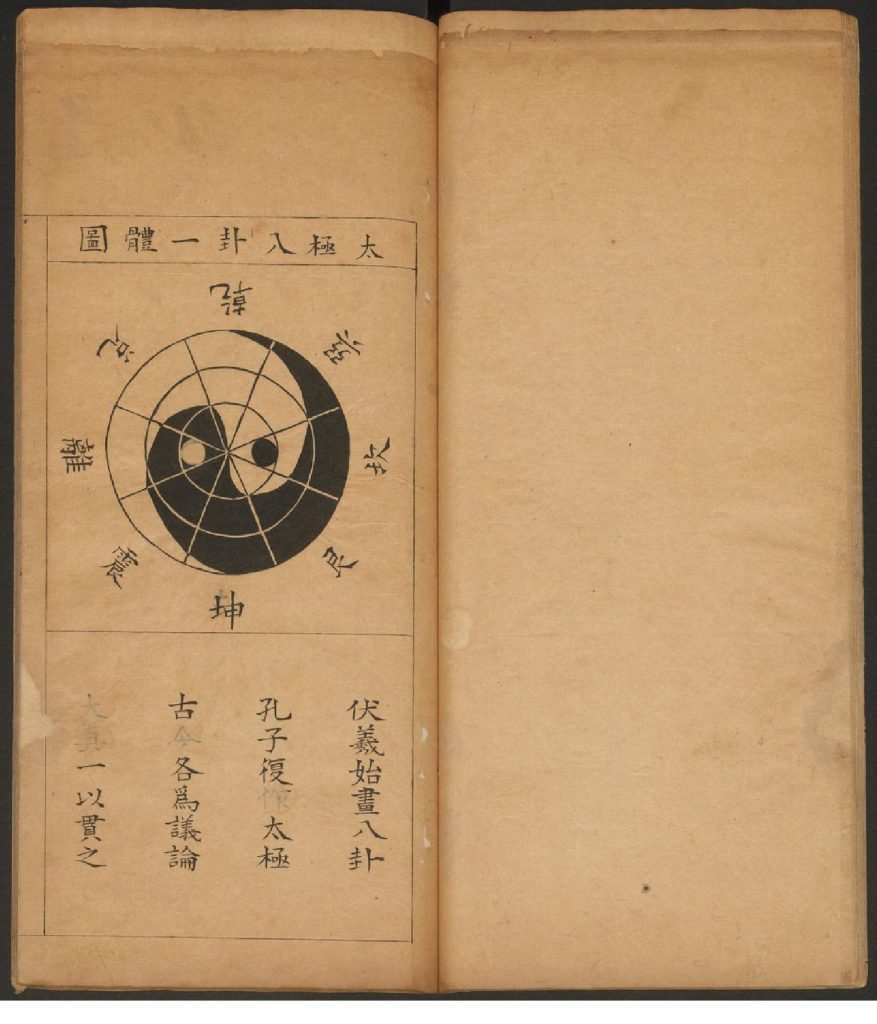 太極八卦一體圖
乾
巽
坎
艮
坤
震
離
兌
伏羲始畫八卦
孔子復作太極
古今各爲議論
大真一以貫之